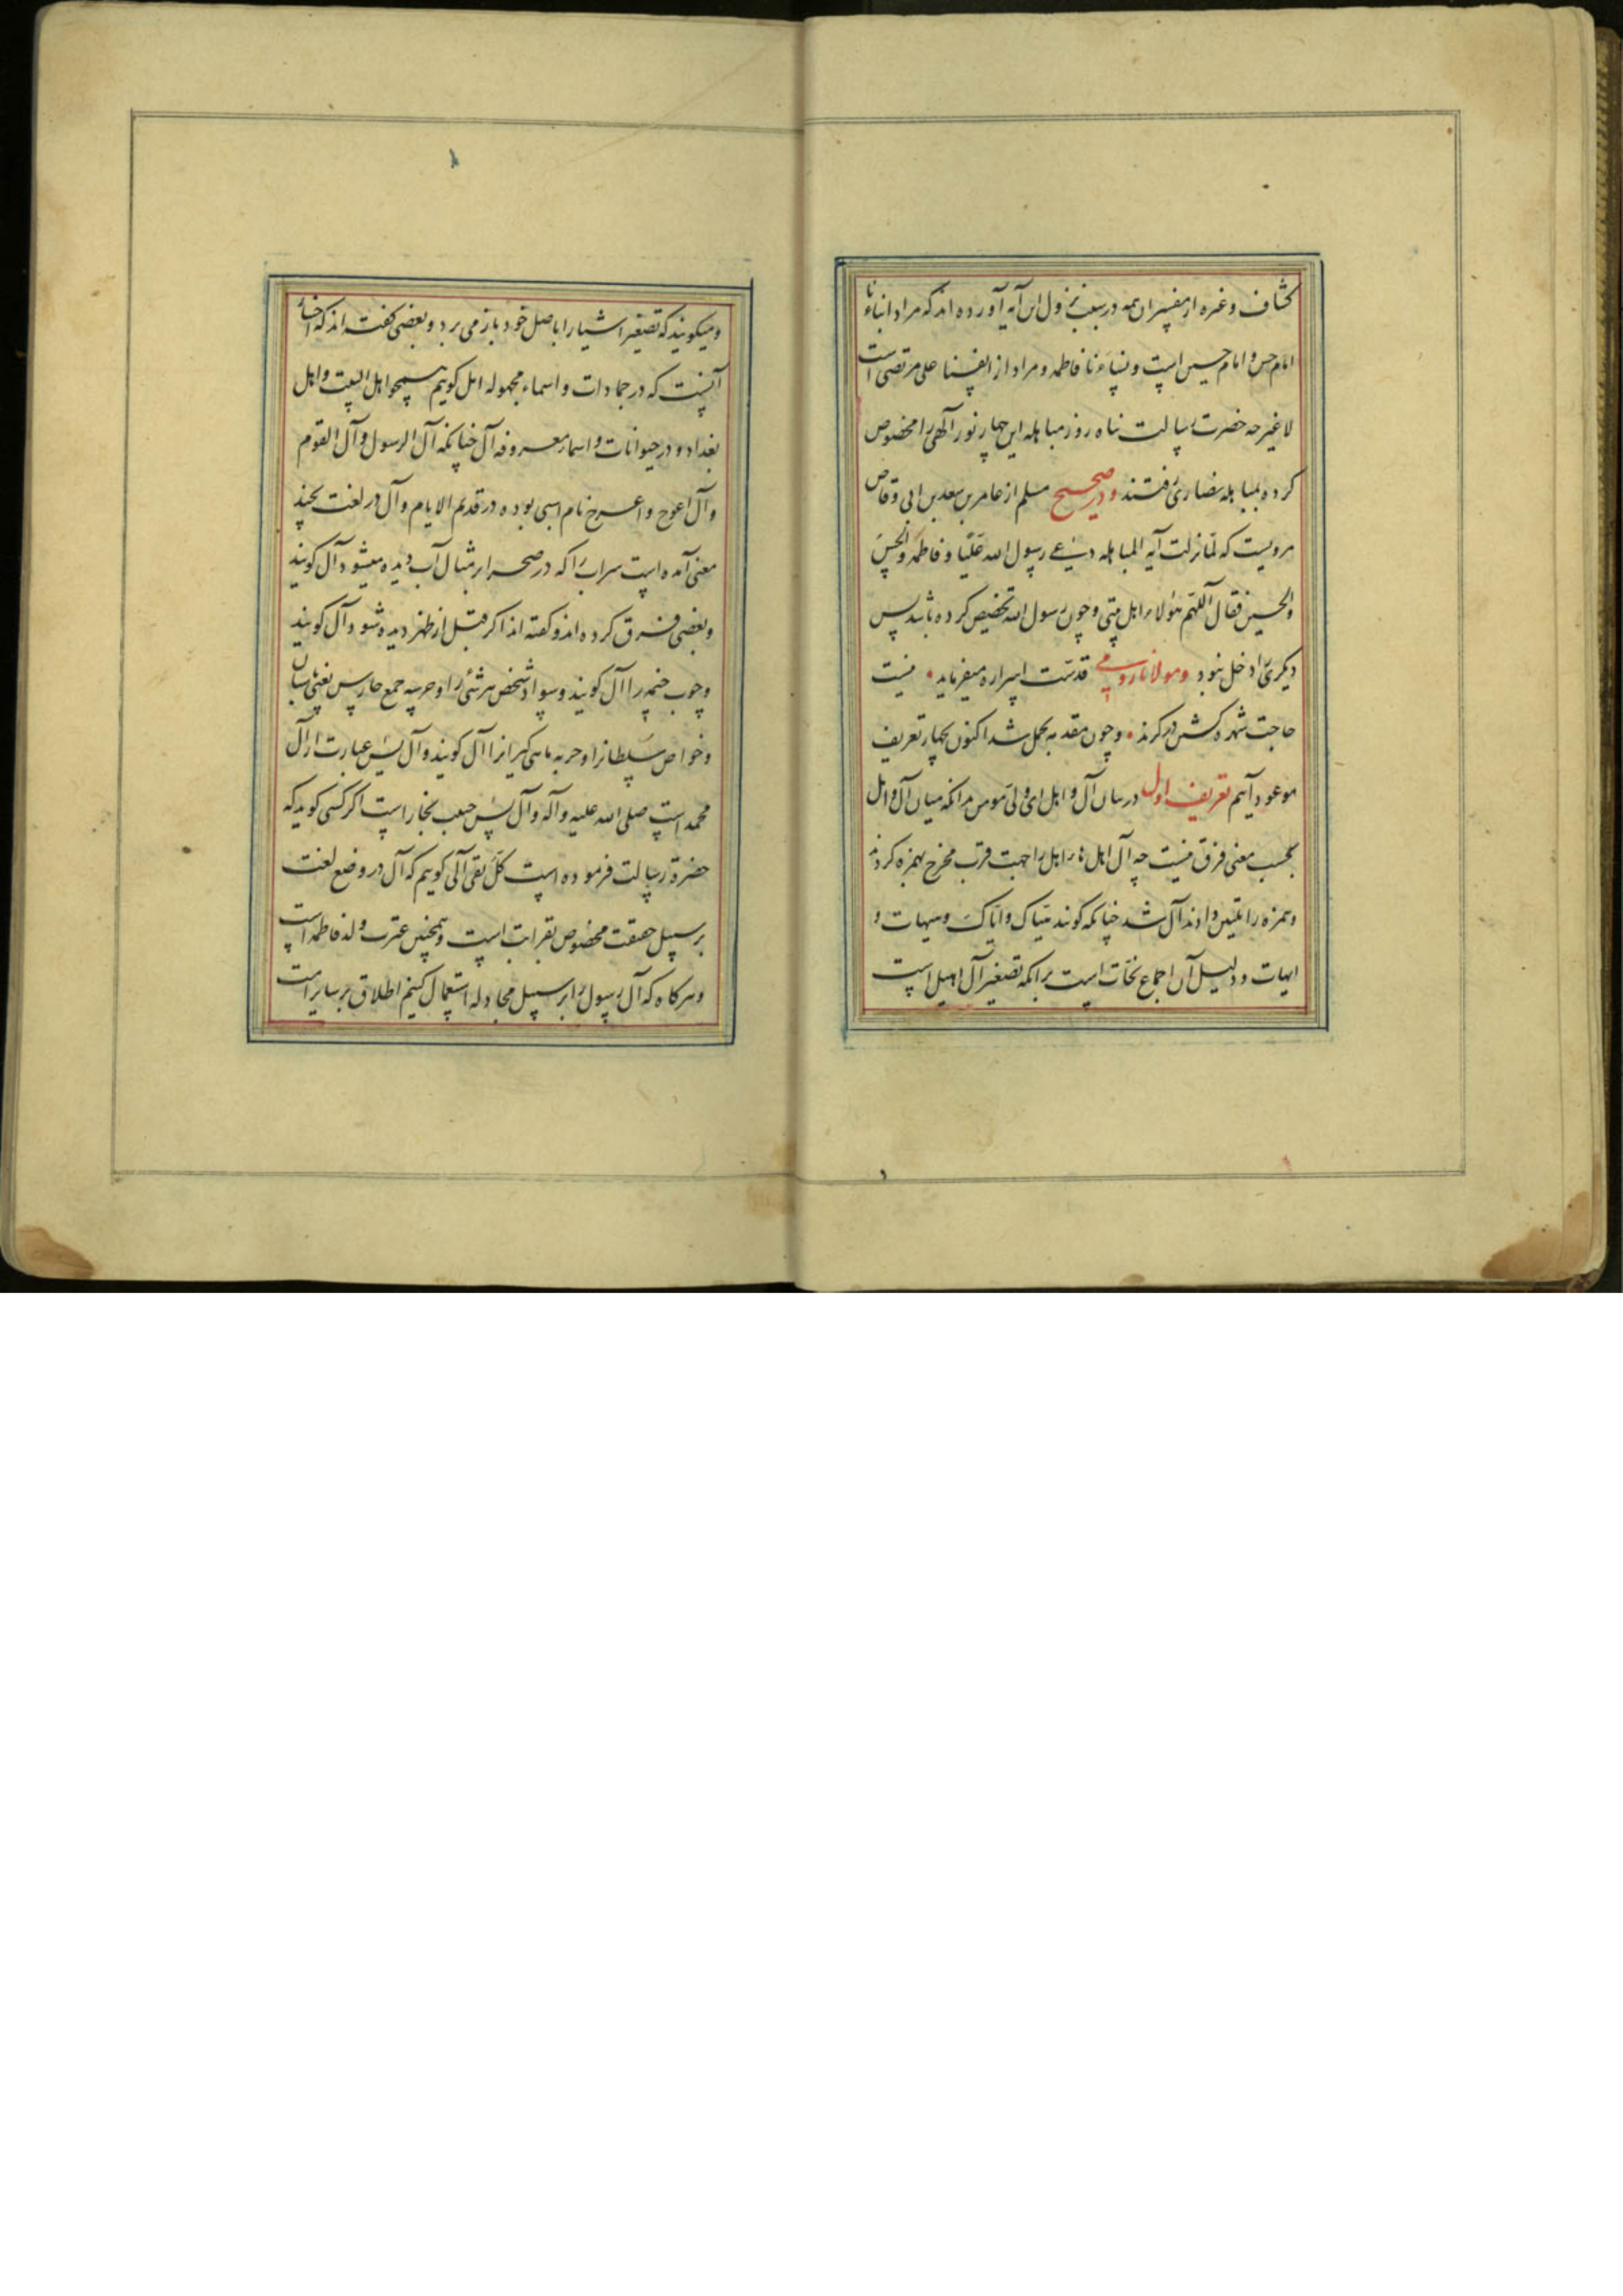 کشاف و غیره از مفسران همه در سبب نزول این آیه آورده اند که مراد ابناءنا
امام حسن و امام حسین است و نساءنا فاطمه و مراد از انفسنا علی مرتضی است
لا غیر چه حضرت رسالت پناه روز مباهله این چهار نور آلهی را مخصوص
کرده بمباهله نصاری رفتند و در صحیح مسلم از عامر بن سعد بن ابی وقاص
مرویست که لما نزلت آیه المباهله دعی رسول الله علیًا و فاطمه و الحسن
و الحسین فقال اللهم هؤلاء اهل بیتی و چون رسول الله تخصیص کرده باشد پس
دیکری را دخل نبود و مولانا رومی قدست اسراره میفرماید نیست
حاجت شهره کشتن در کرند و چون مقدمه مجمل شد اکنون بچهار تعریف
موعود آئیم تعریف اول در بیان آل و اهل ای ولی مومن بدانکه میان آل و اهل
بحسب معنی فرق نیست چه آل اهل هاء اهل را جهت قرب مخرج بهمزه کردند
و همزه را تلیین دادند آل شد چنانکه کویند هیاک و ایاک و هیهات و
ایهات و دلیل آن اجماع نحات است برانکه تصغیر آل اهیل است
و میکویند که تصغیر اشیا را باصل خود باز می برد و بعضی کفته اند که اختیار
آنست که در جمادات و اسماء مجهوله اهل کوییم همچو اهل البیت و اهل
بغداد و در حیوانات و اسماء معروفه آل چنانکه آل الرسول و آل القوم
و آل اعوج و اعوج نام اسبی بوده در قدیم الایام و آل در لغت بچند
معنی آمده است سراب را که در صحرا بر مثال آب دیده میشود آل کویند
و بعضی فرق کرده اند و کفته اند اکر قبل از ظهر دیده شود آل کویند
و چوب خیمه را آل کویند و سواد شخص هر شئی را و حرسه جمع حارس یعنی پاسبان
و خواص سلطانرا و حربه ماهی کیرانرا آل کویند و آل یس عبارت از آل
محمد است صلی الله علیه و آله و آل یس حبیب نجار است اکر کسی کوید که
حضرة رسالت فرموده است کل تقی آلی کوییم که آل در وضع لغت
بر سبیل حقیقت مخصوص بقرابت است و همچنین عترت ولد فاطمه است
و هر کاه که آل رسول را بر سبیل مجادله استعمال کنیم اطلاق بر سایر امت